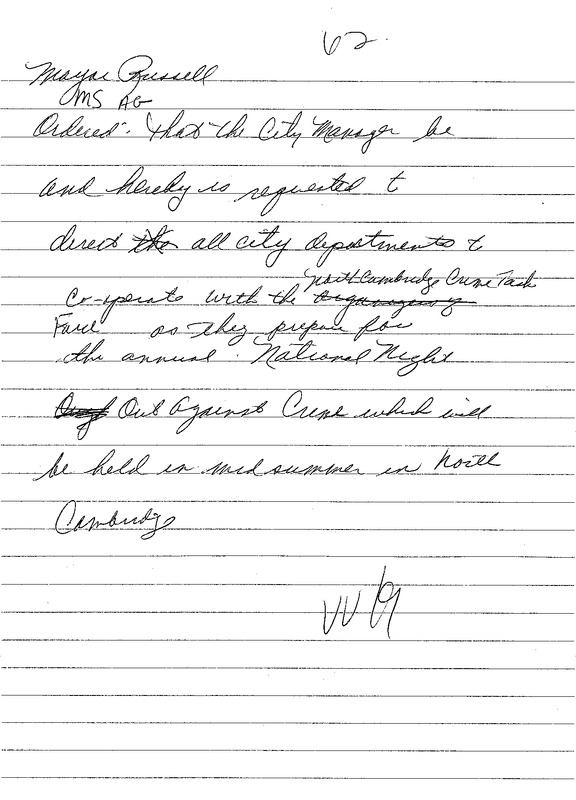 62.
Mayor Russell
MS AG
Ordered: That the City Manager be
and hereby is requested t
direct the all city departments t
North Cambridge Crime Task
Co-operate with the Organizers of
Force as they prepare for
the annual National Night
Out Against Crime which will
be held in midsummer in North
Cambridge